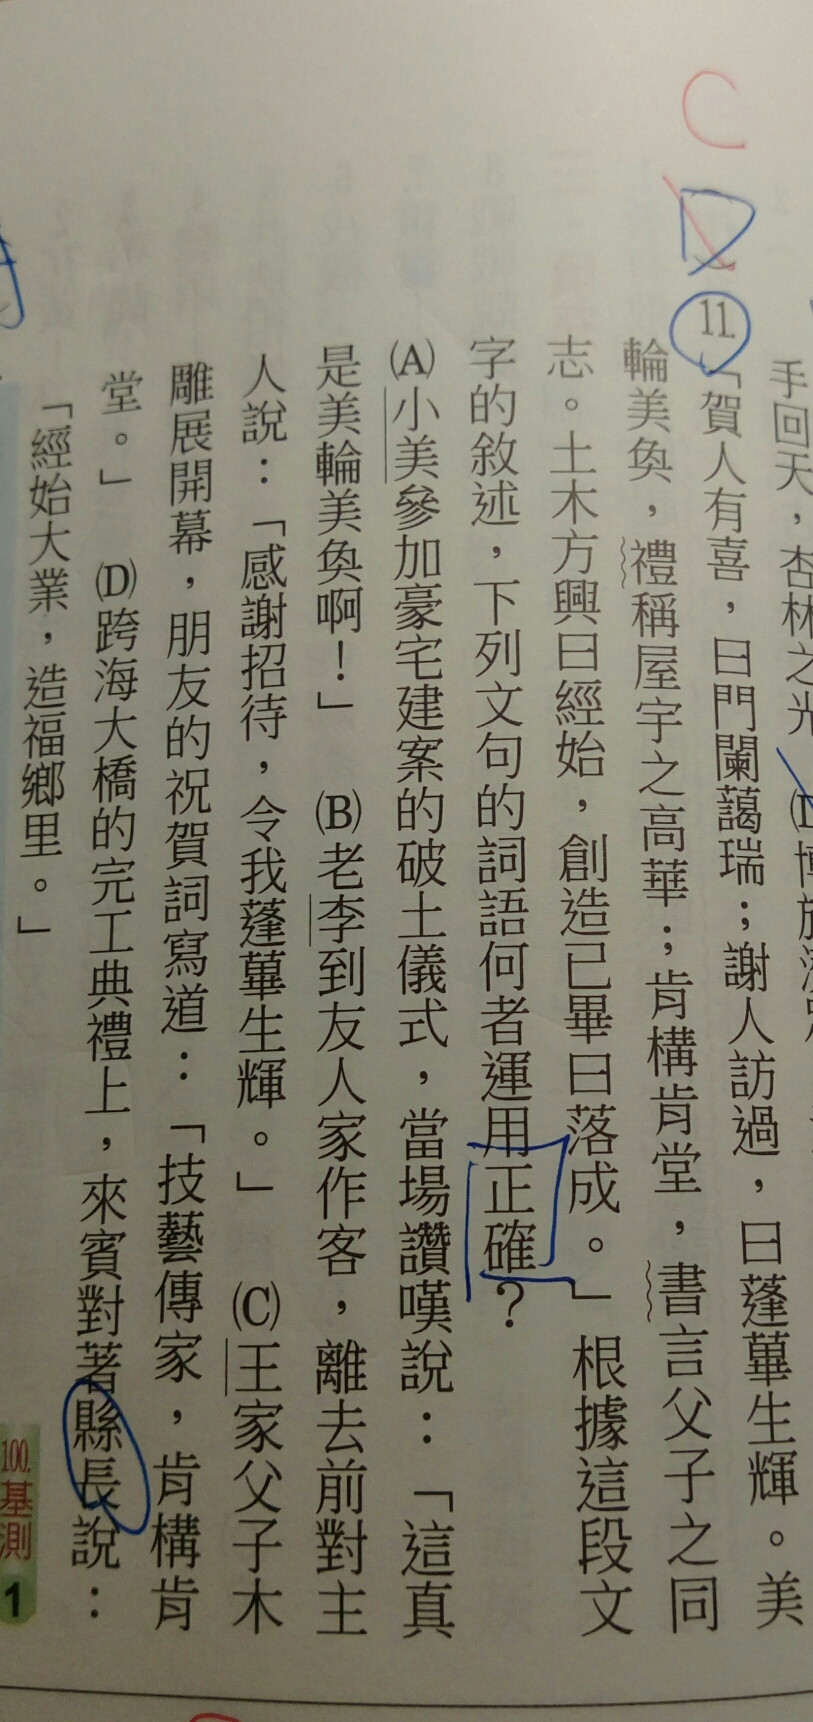 手回天，杏林之光
C
D
11.「賀人有喜，曰門闌藹瑞；謝人訪過，曰蓬蓽生輝。美
輪美奐，禮稱屋宇之高華；肯構肯堂，書言父子之同
志。土木方興曰經始，創造已畢曰落成。」根據這段文
字的敘述，下列文句的詞語何者運用正確？
(A)小美參加豪宅建案的破土儀式，當場讚嘆說：「這真
是美輪美奐啊！」 (B)老李到友人家作客，離去前對主
人說：「感謝招待，令我蓬蓽生輝。」 (C)王家父子木
雕展開幕，朋友的祝賀詞寫道：「技藝傳家，肯構肯
堂。」 (D)跨海大橋的完工典禮上，來賓對著縣長說：
「經始大業，造福鄉里。」
100.基測1